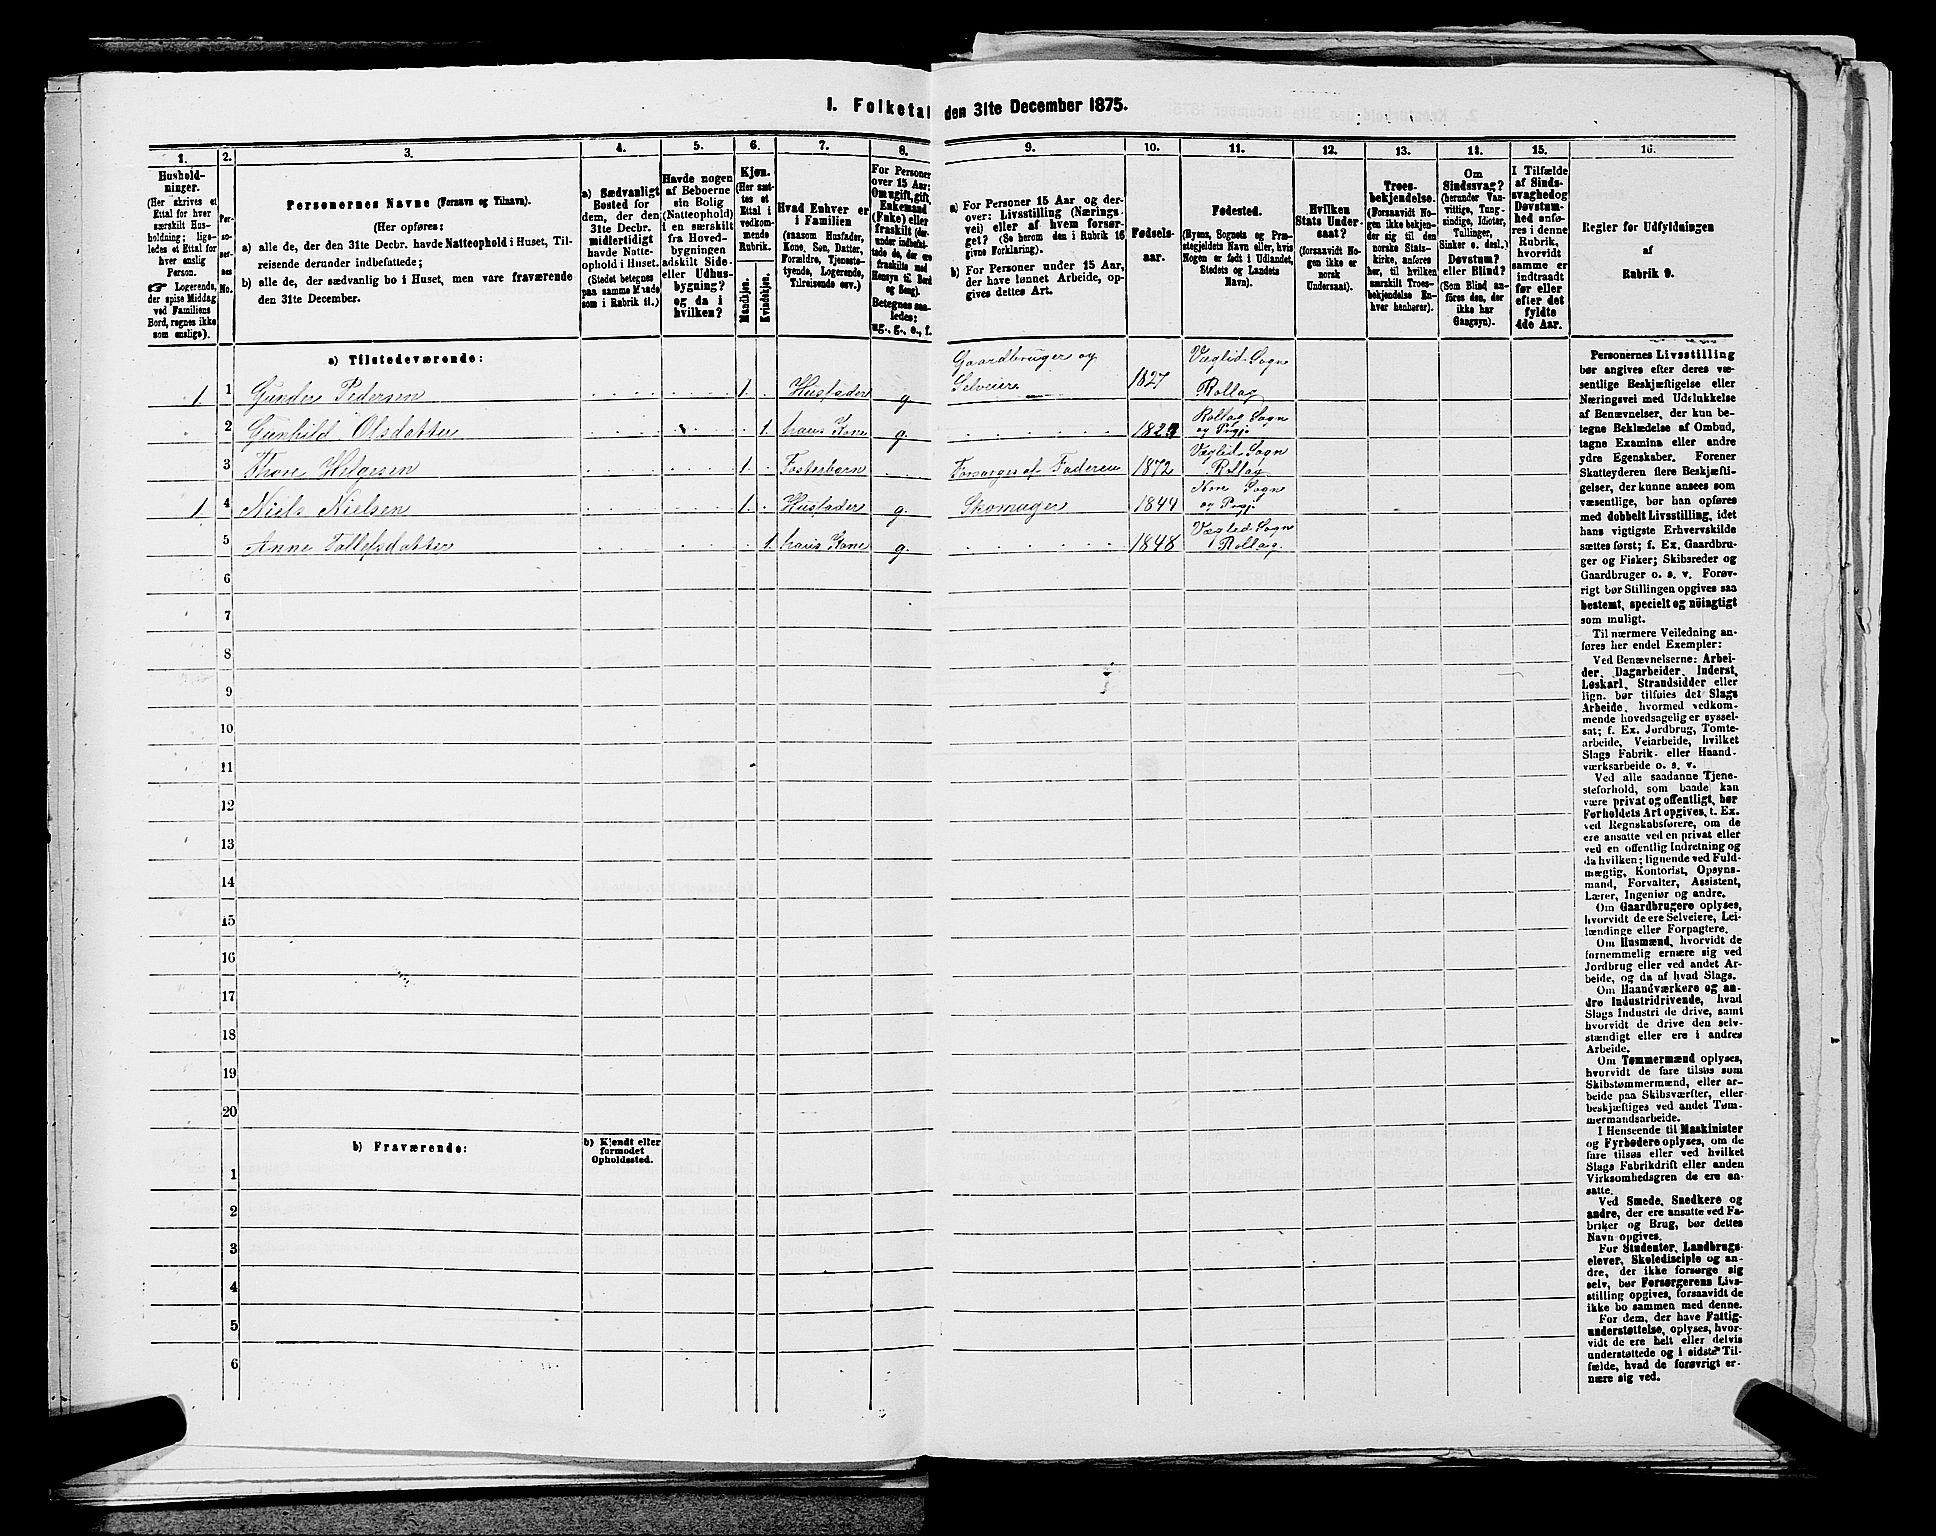 1. Folketal den 31te December 1875.
1. 2. 3. 4. 5. 6. 7. 8. 9. 10. 11. 12. 13. 14. 15. 16.
Hushold-
ninger.
(Her skrives et
Ettal for hver
særskilt Hus-
holdning; lige-
ledes et Ettal for
hver enslig
Person.
☞ Logerende,
der spise Middag
ved Familiens
Bord, regnes ikke
som enslige).
Per-
so-
ner-
nes
No.
Personernes Navne (Fornavn og Tilnavn).
(Her opføres:
a) alle de, der den 31te Decbr. havde Natteophold i Huset, Til-
reisende derunder indbefattede;
b) alle de, der sædvanlig bo i Huset, men vare fraværende
den 31te December.
a) Sædvanligt
Bosted for
dem, der den
31te Decbr.
midlertidigt
havde Natte-
ophold i Huset.
(Stedet betegnes
paa samme Maade
som i Rubrik 11.)
Havde nogen
af Beboerne
sin Bolig
(Natteophold)
i en særskilt
fra Hoved-
bygningen
adskilt Side-
eller Udhus-
bygning?
og da i
hvilken?
Kjøn.
(Her sæt-
tes et
Ettal i
vedkom-
mende
Rubrik.
Mandkjøn.
Kvindekjøn.
Hvad Enhver er
i Familien
(saasom Husfader,
Kone, Søn, Datter,
Forældre, Tjeneste-
tyende, Logerende,
Tilreisende osv.)
For Personer
over 15 Aar:
Om ugift, gift,
Enkemand
(Enke) eller
fraskilt (der-
under indbefat-
tede de, der ere
fraskilte med
Hensyn til Bord
og Seng).
Betegnes saa-
ledes:
ug., g., e., f.
a) For Personer 15 Aar og der-
over: Livsstilling (Nærings-
vei) eller af hvem forsør-
get? (Se herom den i Rubrik 16
givne Forklaring).
b) For Personer under 15 Aar,
der have lønnet Arbeide, op-
gives dettes Art.
Fødsels-
aar.
Fødested.
(Byens, Sognets og Præ-
stegjeldets Navn eller, hvis
Nogen er født i Udlandet,
Stedets og Landets
Navn).
Hvilken
Stats Under-
saat?
(forsaavidt No-
gen ikke er
norsk
Undersaat).
Troes-
bekjendelse.
(Forsaavidt No-
gen ikke bekjen-
der sig til den
norske Stats-
kirke, anføres
her, til hvilken
særskilt Troes-
bekjendelse En-
hver henhører).
Om
Sindssvag?
(herunder Van-
vittige, Tung-
sindige, Idioter,
Tullinger,
Sinker o. desl.)
Døvstum?
eller Blind?
(Som Blind an-
føres den, der
ikke har
Gangsyn).
I Tilfælde
af Sinds-
svaghed og
Døvstum-
hed anfø-
res i denne
Rubrik,
hvorvidt
samme er
indtraadt
før eller
efter det
fyldte
4de Aar.
Regler for Udfyldningen
af
Rubrik 9.
a) Tilstedeværende:
1 1 Gunder Pedersen 1. Husfader g. Gaardbruger og Selveier 1827 Væglid Sogn Rollag
2 Gunhild Olsdatter 1. hans Kone g. Rollag Sogn og Prgj.
3 Thore Helgesen 1. Fosterbarn Forsørges af Faderen 1872 Væglid Sogn Rollag
1 4 Niels Nielsen 1. Husfader g. Skomager 1844 Nore Sogn og Prgj.
5 Anne Tollefsdatter 1. hans Kone g. 1848 Væglid Sogn Rollag.
6
7
8
9
10
11
12
13
14
15
16
17
18
19
20
b) Fraværende:
b) Kjendt eller
formodet
Opholdssted.
1
2
3
4
5
6
Personernes Livsstilling
bør angives efter deres væ-
sentlige Beskjæftigelse eller
Næringsvei med Udelukkelse
af Benævnelser, der kun be-
tegne Beklædelse af Ombud,
tagne Examina eller andre
ydre Egenskaber. Forener
Skatteyderen flere Beskjæfti-
gelser, der kunne ansees som
væsentlige, bør han opføres
med dobbelt Livsstilling, idet
hans vigtigste Erhvervskilde
sættes først; f. Ex. Gaardbru-
ger og Fisker; Skibsreder og
Gaardbruger o. s. v. Forøv-
rigt bør Stillingen opgives saa
bestemt, specielt og nöiagtigt
som muligt.
Til nærmere Veiledning an-
føres her endel Exempler:
Ved Benævnelserne: Arbei-
der, Dagarbeider, Inderst,
Løskarl, Strandsidder eller
lign. bør tilføies det Slags
Arbeide, hvormed vedkom-
mende hovedsagelig er syssel-
sat; f. Ex. Jordbrug, Tomte-
arbeide, Veiarbeide, hvilket
Slags Fabrik- eller Haand-
værksarbeide o. s. v.
Ved alle saadanne Tjene-
steforhold, som baade kan
være privat og offentligt, bør
Forholdets Art opgives, t. Ex.
ved Regnskabsførere, om de
ere ansatte ved en privat eller
ved en offentlig Indretning og
da hvilken; lignende ved Fuld-
mægtig, Kontorist, Opsyns-
mand, Forvalter, Assistent,
Lærer, Ingeniør og andre.
Om Gaardbrugere oplyses,
hvorvidt de ere Selveiere, Lei-
lændinge eller Forpagtere.
Om Husmænd, hvorvidt de
fornemmelig ernære sig ved
Jordbrug eller ved andet Ar-
beide, og da af hvad Slags.
Om Haandværkere og an-
dre Industridrivende, hvad
Slags Industri de drive, samt
hvorvidt de drive den selv-
stændigt eller ere i andres
Arbeide.
Om Tømmermænd oplyses,
hvorvidt de fare tilsøs som
Skibstømmermænd, eller ar-
beide paa Skibsværfter, eller
beskjæftiges ved andet Tøm-
mermandsarbeide.
I Henseende til Maskinister
og Fyrbødere oplyses, om de
fare tilsøs eller ved hvilket
Slags Fabrikdrift eller anden
Virksomhedsgren de ere an-
satte.
Ved Smede, Snedkere og
andre, der ere ansatte ved Fa-
briker og Brug, bør dettes
Navn opgives.
For Studenter, Landbrugs-
elever, Skoledisciple og an-
dre, der ikke forsørge sig
selv, bør Forsørgerens Livs-
stilling opgives, forsaavidt de
ikke bo sammen med denne.
For dem, der have Fattig-
understøttelse, oplyses, hvor-
vidt de ere helt eller delvis
understøttede og i sidste Til-
fælde, hvad de forøvrigt er-
nære sig ved.